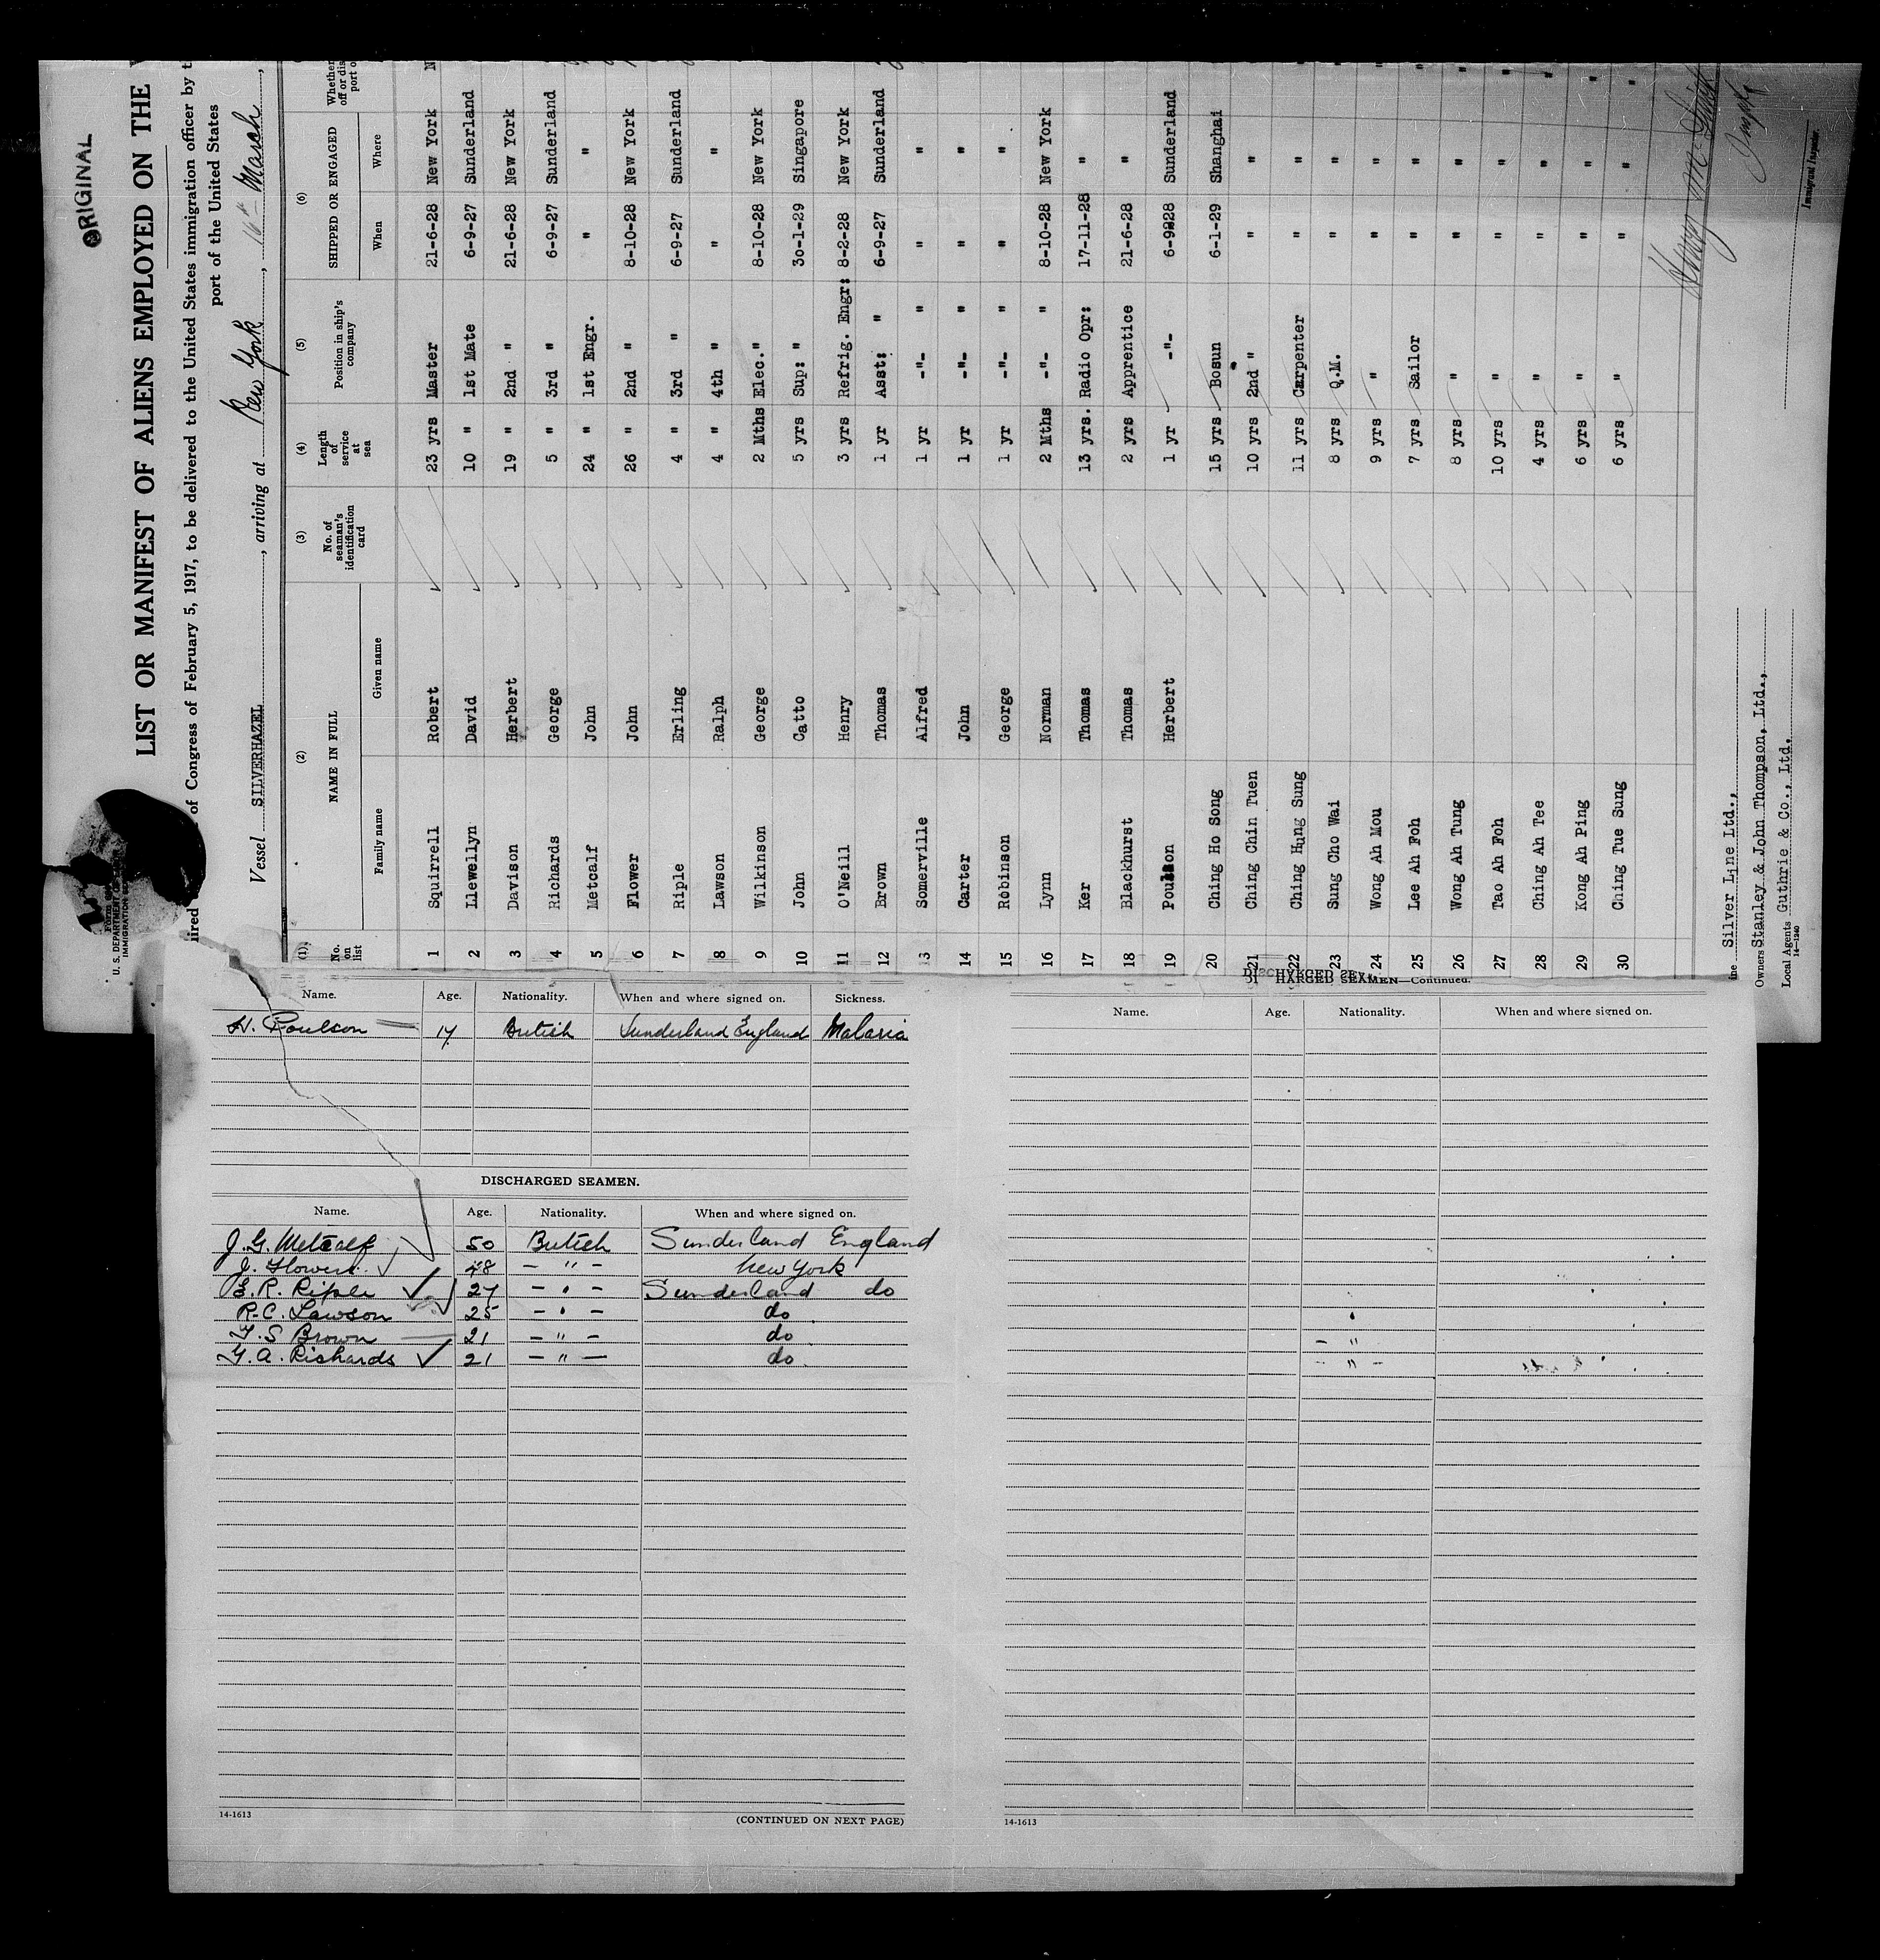 ORIGINAL
LIST OR MANIFEST OF ALIENS EMPLOYED ON THE
of Congress of February 5, 1917, to be delivered to the United States immigration officer by
port of the United States
U. S. DEPARTMENT OF
IMMIGRATION
Vessel SILVERHAZEL, arriving at New York, March,
(1) (2) (3) (4) (5) (6)
No. on list NAME IN FULL No. of seaman's identification card Length of service at sea Position in ship's company SHIPPED OR ENGAGED Whether
Family name Given name When Where
1 Squirrell Robert 23 yrs Master 21-6-28 New York
2 Llewellyn David 10 " 1st Mate 6-9-27 Sunderland
3 Davison Herbert 19 " 2nd " 21-6-28 New York
4 Richards George 5 " 3rd " 6-9-27 Sunderland
5 Metcalf John 24 " 1st Engr. " "
6 Flower John 26 " 2nd " 8-10-28 New York
7 Riple Erling 4 " 3rd " 6-9-27 Sunderland
8 Lawson Ralph 4 " 4th " " "
9 Wilkinson George 2 Mths Elec." 8-10-28 New York
10 John Catto 5 yrs Sup: " 30-1-29 Singapore
11 O'Neill Henry 3 yrs Refrig. Engr: 8-2-28 New York
12 Brown Thomas 1 yr Asst: " 6-9-27 Sunderland
13 Somerville Alfred 1 yr -"- " " "
14 Carter John 1 yr -"- " " "
15 Robinson George 1 yr -"- " " "
16 Lynn Norman 2 Mths -"- " 8-10-28 New York
17 Ker Thomas 13 yrs. Radio Opr: 17-11-28 "
18 Blackhurst Thomas 2 yrs Apprentice 21-6-28 "
19 Poulson Herbert 1 yr -"- 6-9-28 Sunderland
20 Ching Ho Song 15 yrs Bosun 6-1-29 Shanghai
21 Ching Chin Tuen 10 yrs 2nd " " "
22 Ching Hung Sung 11 yrs Carpenter " "
23 Sung Cho Wai 8 yrs Q.M. " "
24 Wong Ah Mou 9 yrs " " "
25 Lee Ah Foh 7 yrs Sailor " "
26 Wong Ah Tung 8 yrs " " "
27 Tao Ah Foh 10 yrs " " "
28 Ching Ah Tee 4 yrs " " "
29 Kong Ah Ping 6 yrs " " "
30 Ching Tue Sung 6 yrs " " "
Silver Line Ltd.,
Owners Stanley & John Thompson, Ltd.,
Local Agents Guthrie & Co., Ltd.
14-1240
Immigrant Inspector.
Name. Age. Nationality. When and where signed on. Sickness.
H. Poulson 17 British Sunderland England Malaria
DISCHARGED SEAMEN.
Name. Age. Nationality. When and where signed on.
J. G. Metcalf 50 British Sunderland England
J. Flower 48 - " - New York
E. R. Riple 27 - " - Sunderland do
R. C. Lawson 25 - " - do
T. S Brown 21 - " - do
G. A. Richards 21 - " - do
14-1613
(CONTINUED ON NEXT PAGE)
DISCHARGED SEAMEN—Continued.
Name. Age. Nationality. When and where signed on.
- "
- " -
14-1613